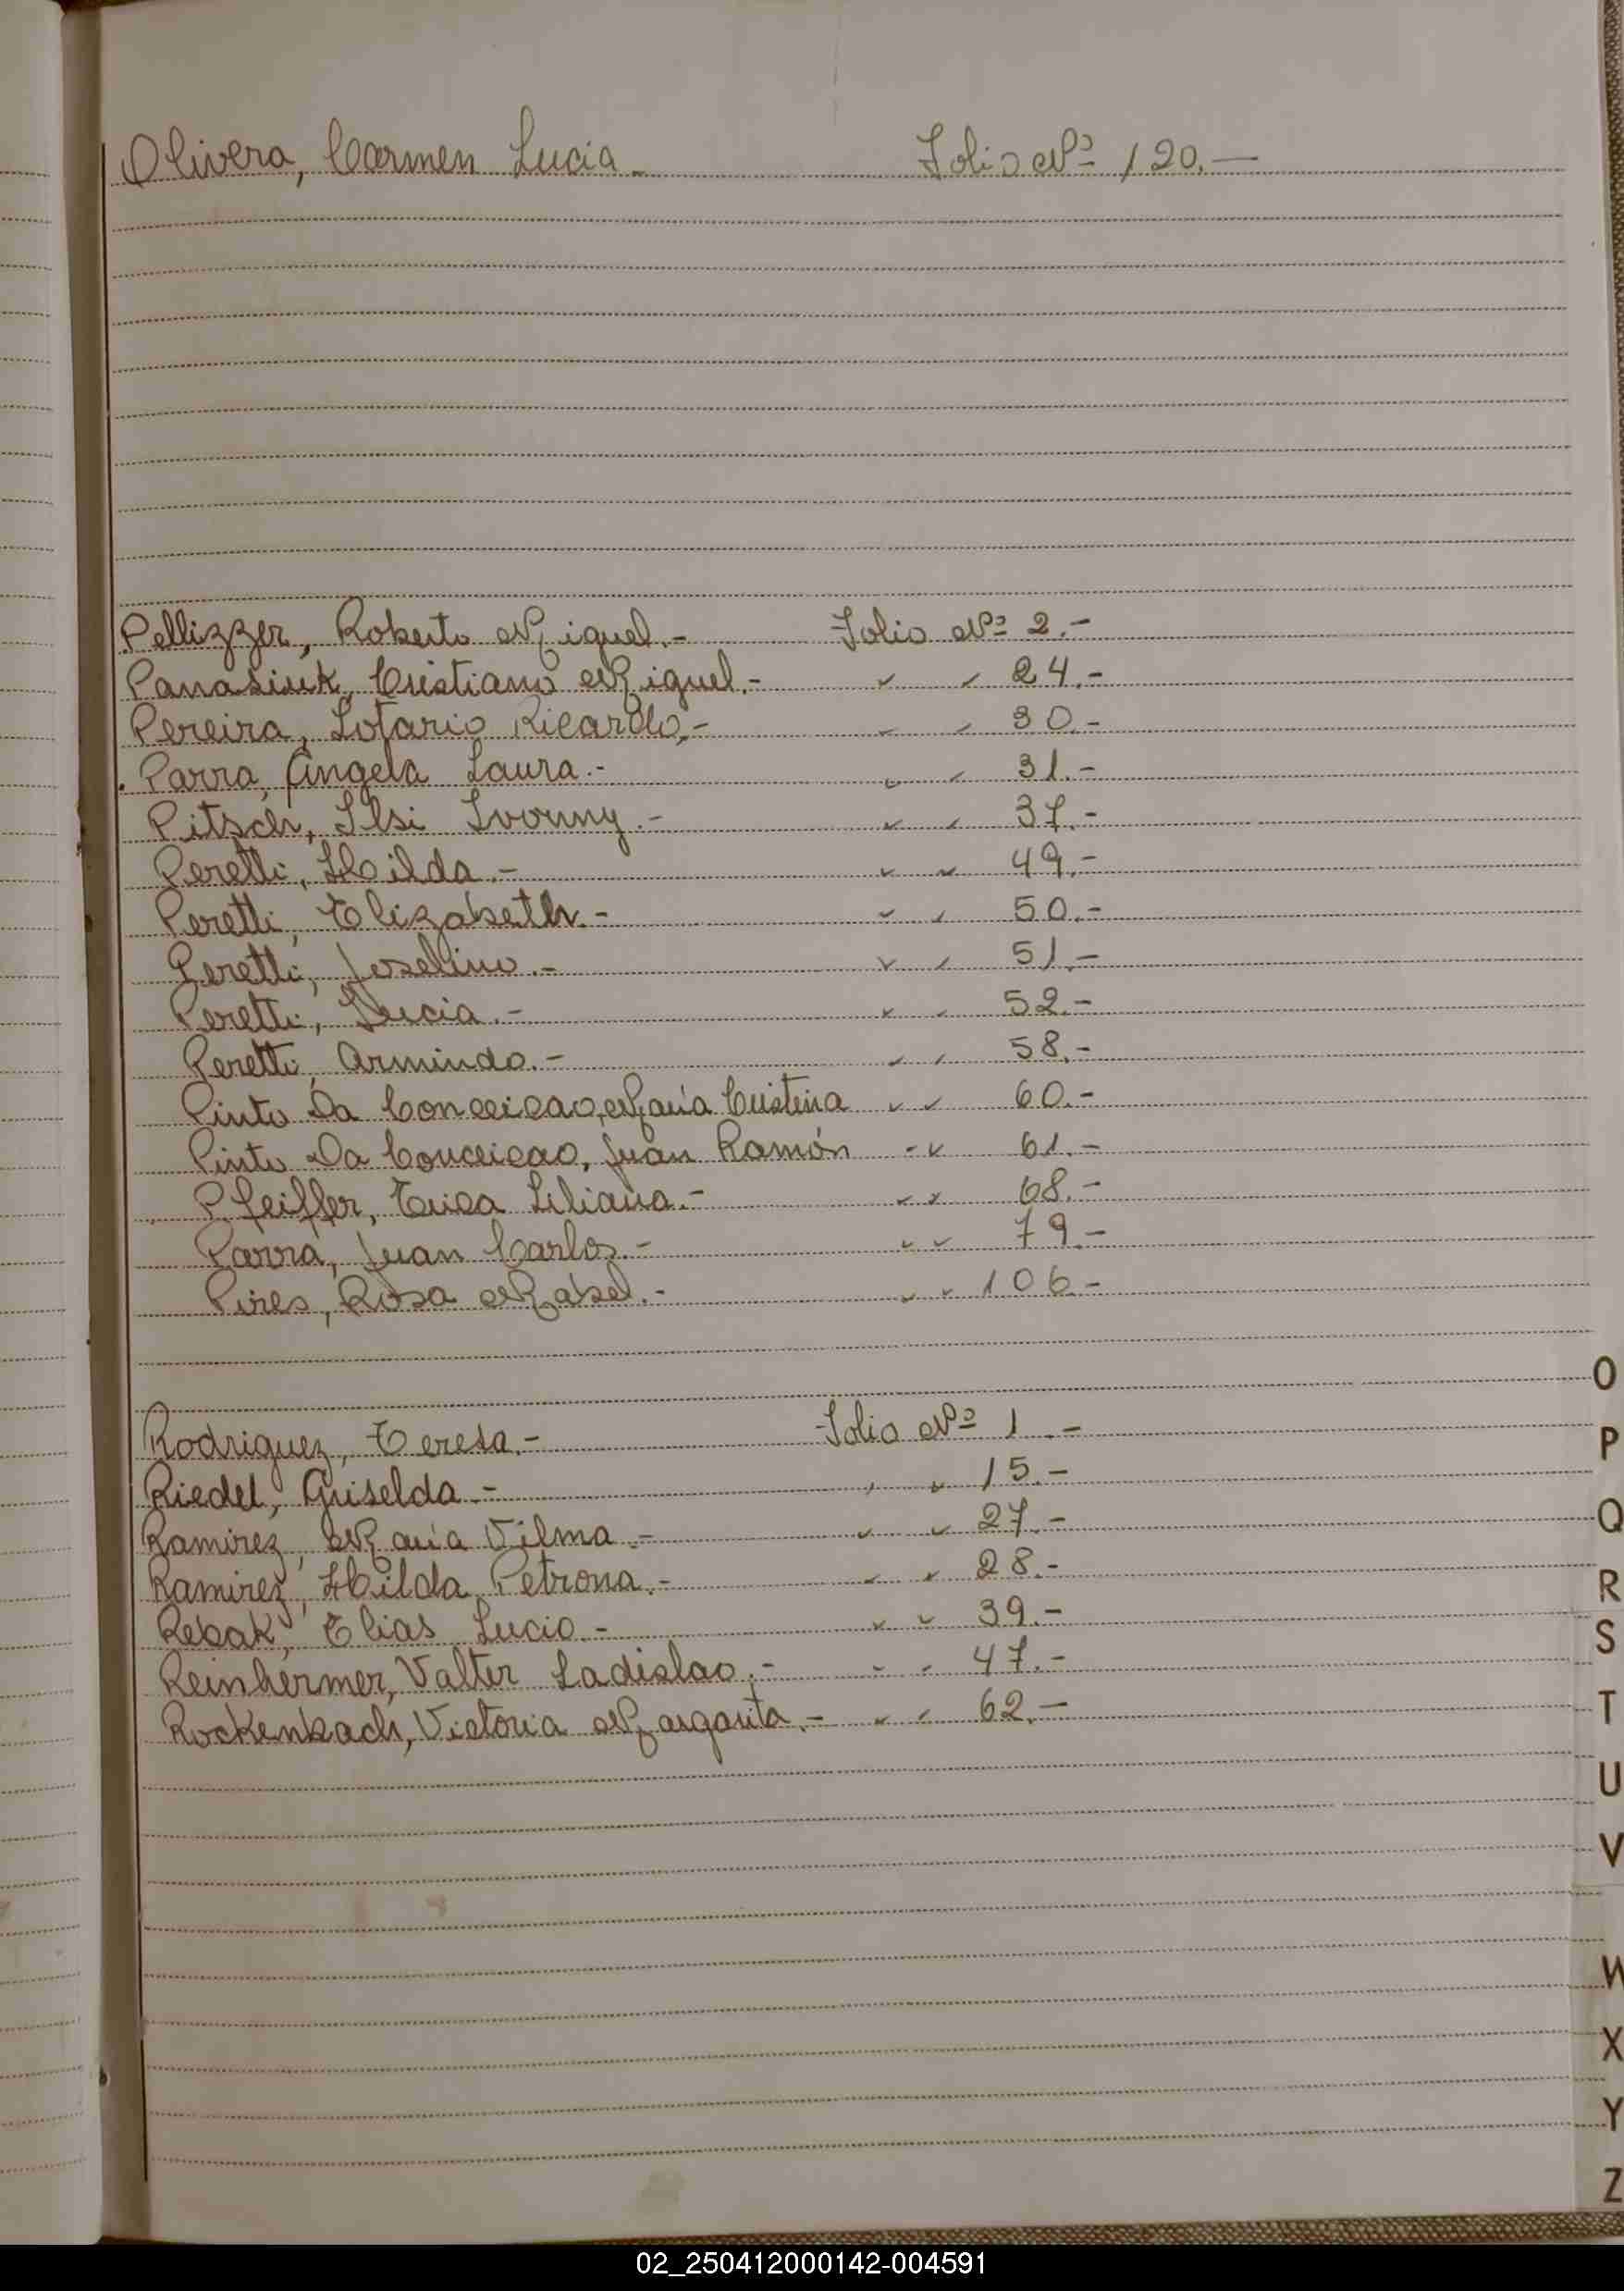 Olivera, Carmen Lucia.- Folio Nº 120.-
Pellizzer, Roberto Miguel.- Folio Nº 2.-
Panasiuk, Cristiano Miguel.- " " 24.-
Pereira, Lotario Ricardo,- " " 30.-
Parra, Angela Laura.- " " 31.-
Pitsch, Ilsi Ivonny.- " " 37.-
Peretti, Hilda.- " " 49.-
Peretti, Elizabeth.- " " 50.-
Peretti, Joselino.- " " 51.-
Peretti, Lucia.- " " 52.-
Peretti, Armindo.- " " 58.-
Pinto Da Conceicao, María Cristina " " 60.-
Pinto Da Conceicao, Juan Ramón " " 61.-
Pfeiffer, Erica Liliana.- " " 68.-
Parra, Juan Carlos.- " " 79.-
Pires, Rosa Mabel.- " " 106.-
Rodriguez, Teresa.- Folio Nº 1.-
Riedel, Griselda.- " " 15.-
Ramirez, María Vilma.- " " 27.-
Ramirez, Hilda Petrona.- " " 28.-
Rebak, Elias Lucio.- " " 39.-
Reinhermer, Valter Ladislao.- " " 47.-
Rockenbach, Victoria Margarita.- " " 62.-
O
P
Q
R
S
T
U
V
W
X
Y
Z
02_250412000142-004591